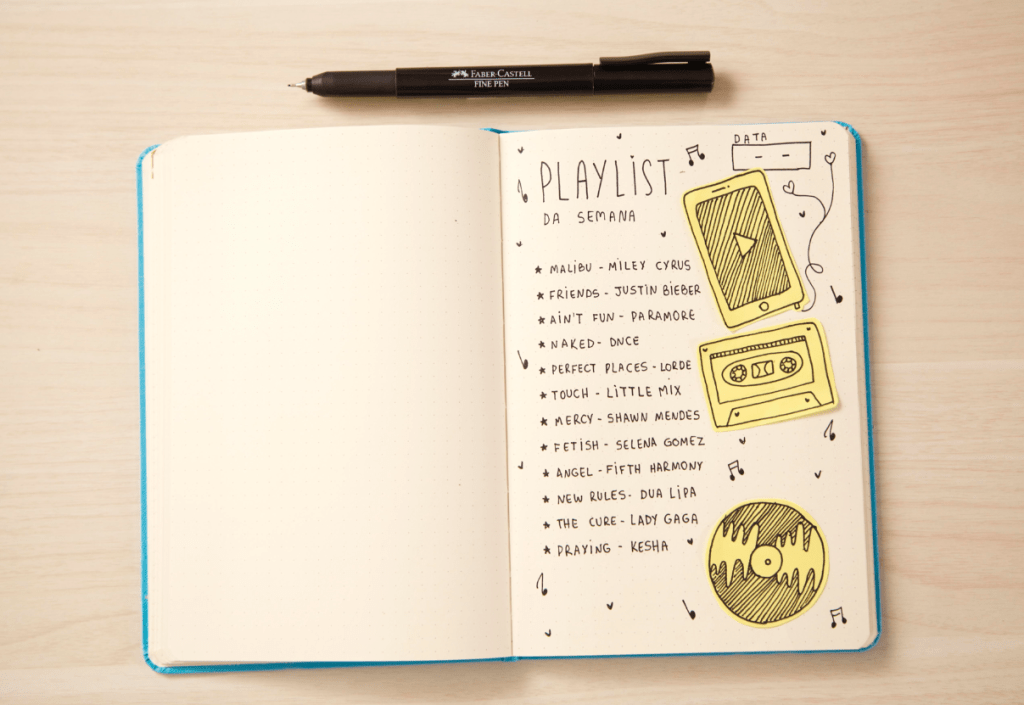 FABER-CASTELL
FINE PEN
DATA
- -
PLAYLIST
DA SEMANA
★ MALIBU - MILEY CYRUS
★ FRIENDS - JUSTIN BIEBER
★ AIN'T FUN - PARAMORE
★ NAKED - DNCE
★ PERFECT PLACES - LORDE
★ TOUCH - LITTLE MIX
★ MERCY - SHAWN MENDES
★ FETISH - SELENA GOMEZ
★ ANGEL - FIFTH HARMONY
★ NEW RULES - DUA LIPA
★ THE CURE - LADY GAGA
★ PRAYING - KESHA